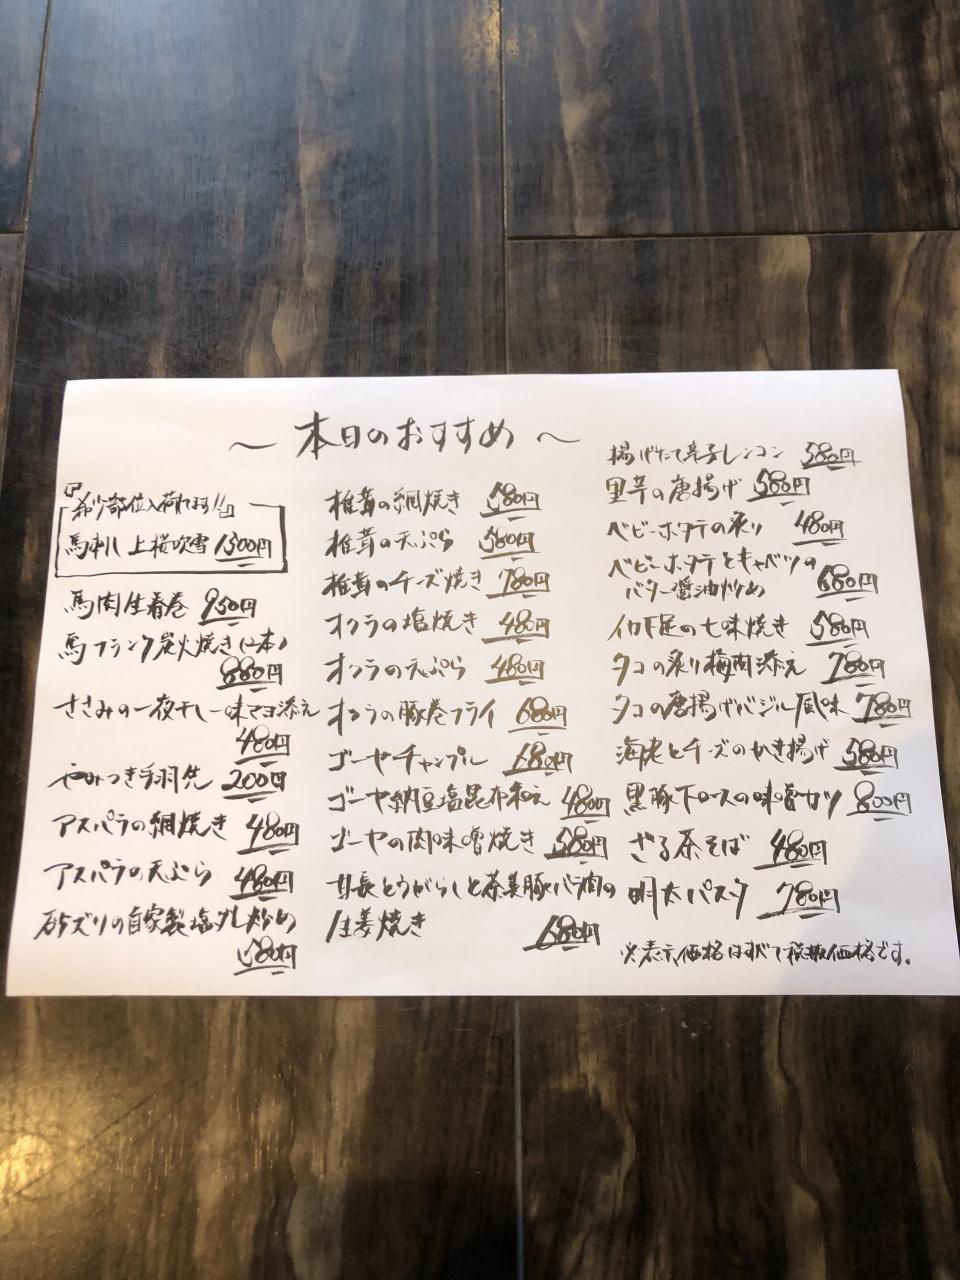 ～ 本日のおすすめ ～
『希少部位入荷してます!!』
馬刺し 上桜吹雪 1500円
馬肉生春巻 950円
馬フランク炭火焼き(2本)
880円
ささみの一夜干し一味マヨ添え
480円
やみつき手羽先 200円
アスパラの網焼き 480円
アスパラの天ぷら 480円
砂ズリの自家製塩ダレ炒め
580円
椎茸の網焼き 580円
椎茸の天ぷら 580円
椎茸のチーズ焼き 780円
オクラの塩焼き 480円
オクラの天ぷら 480円
オクラの豚巻フライ 680円
ゴーヤチャンプル 680円
ゴーヤ納豆塩昆布和え 480円
ゴーヤの肉味噌焼き 580円
甘長とうがらしと茶美豚バラ肉の
生姜焼き 680円
揚げたて辛子レンコン 580円
里芋の唐揚げ 580円
ベビーホタテの炙り 480円
ベビーホタテとキャベツの
バター醤油炒め 680円
イカ下足の七味焼き 580円
タコの炙り梅肉添え 780円
タコの唐揚げバジル風味 780円
海老とチーズのかき揚げ 580円
黒豚下ロースの味噌カツ 800円
ざる茶そば 480円
明太パスタ 780円
※表示価格はすべて税抜価格です。